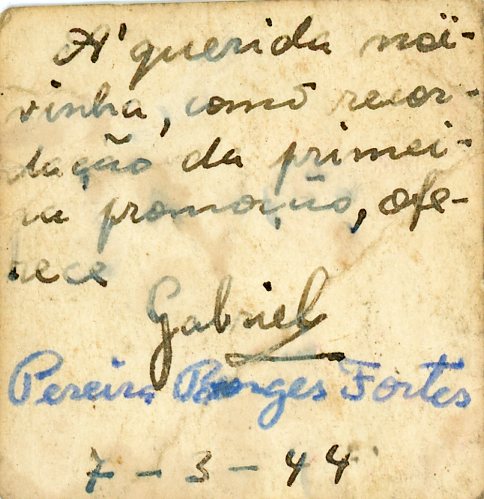 A' querida noi-
vinha, como recor-
dação da primei-
ra promoção, ofe-
rece
Gabriel
Pereira Borges Fortes
7 - 3 - 44